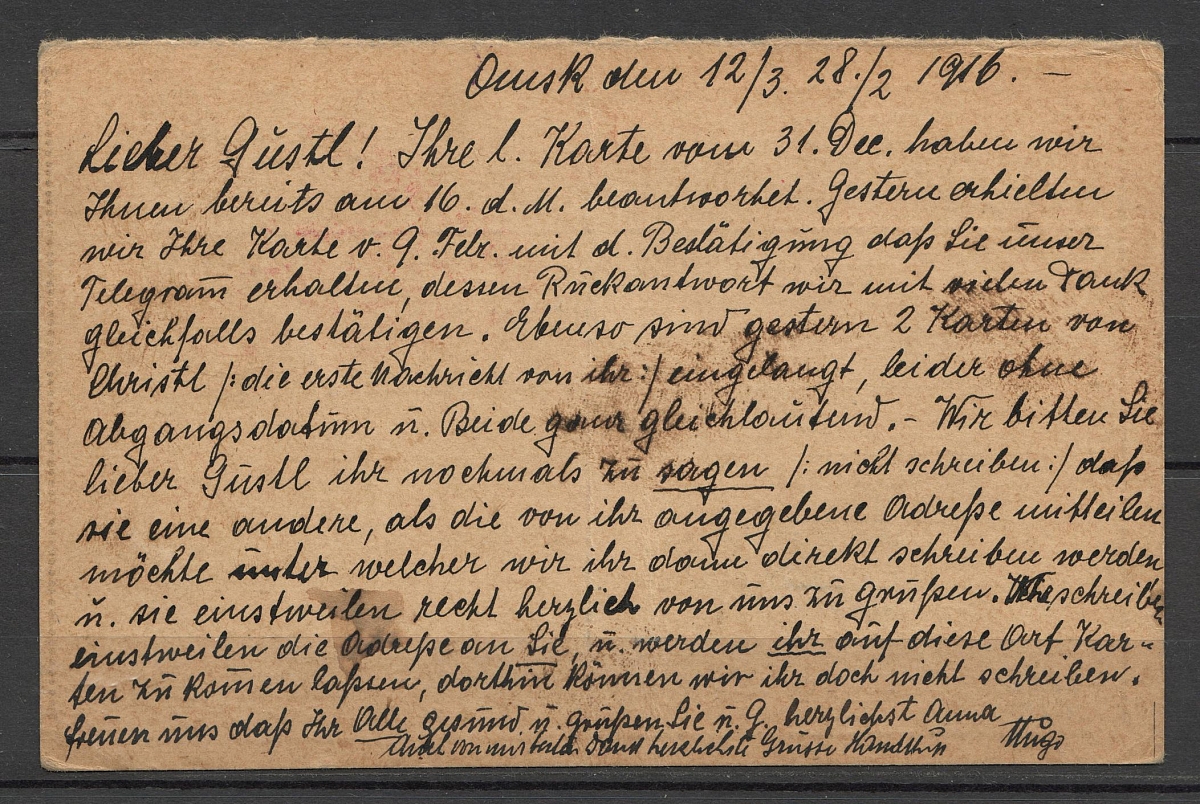 Omsk den 12/3. 28./2 1916. –
Lieber Gustl! Ihre l. Karte vom 31. Dec. haben wir
Ihnen bereits am 16. d. M. beantwortet. Gestern erhielten
wir Ihre Karte v. 9. Febr. mit d. Bestätigung daß Sie unser
Telegram̅ erhalten, dessen Rückantwort wir mit vielen Dank
gleichfalls bestätigen. Ebenso sind gestern 2 Karten von
Christl /: die erste Nachricht von ihr :/ eingelangt, leider ohne
Abgangsdatum u. Beide ganz gleichlautend. – Wir bitten Sie
lieber Gustl ihr nochmals zu sagen /: nicht schreiben :/ daß
sie eine andere, als die von ihr angegebene Adreße mitteilen
möchte unter welcher wir ihr dann direkt schreiben werden
u. sie einstweilen recht herzlich von uns zu grüßen. schreiben
einstweilen die Adreße an Sie, u. werden ihr auf diese Art Kar-
ten zu kom̅en laßen, dorthin können wir ihr doch nicht schreiben.
freuen uns daß Ihr Alle gesund u. grüßen Sie u. G. herzlichst Anna
Hugo
Auch von herzlichste Grüsse